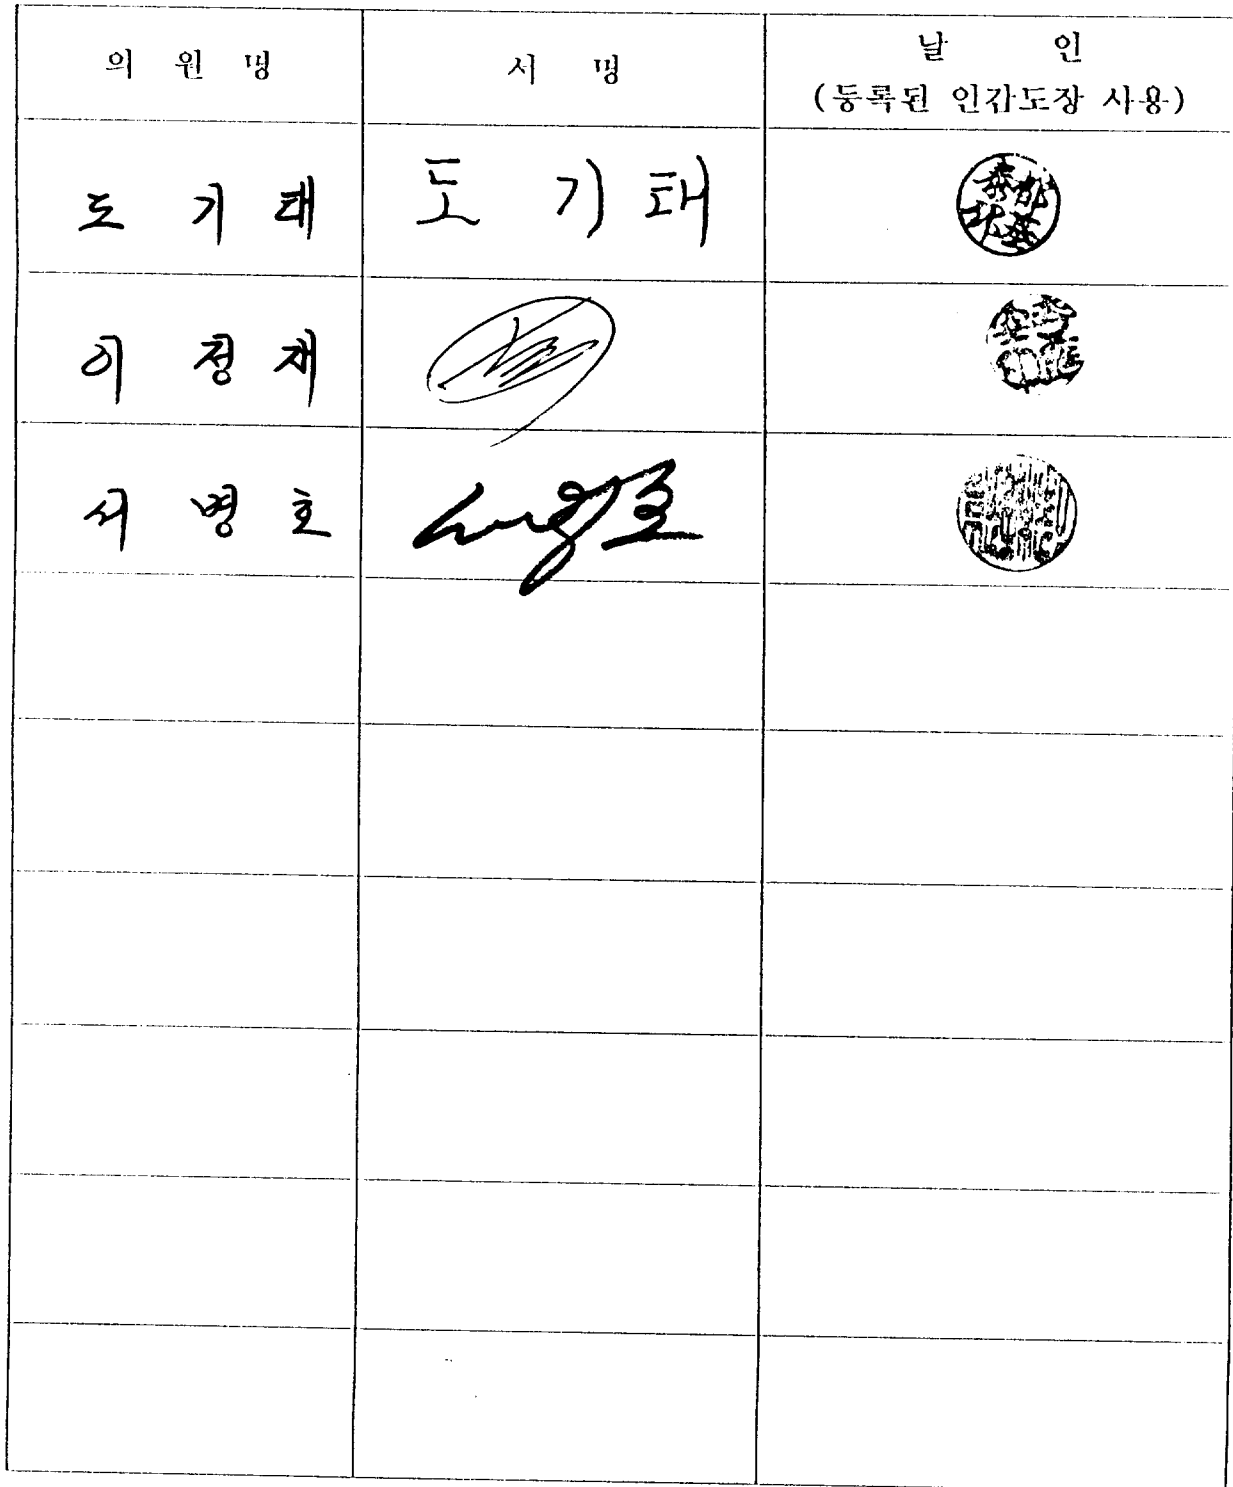 의 원 명 서 명 날 인
(등록된 인감도장 사용)
도 기 태 도 기 태
이 정 재
서 병 호 서병호